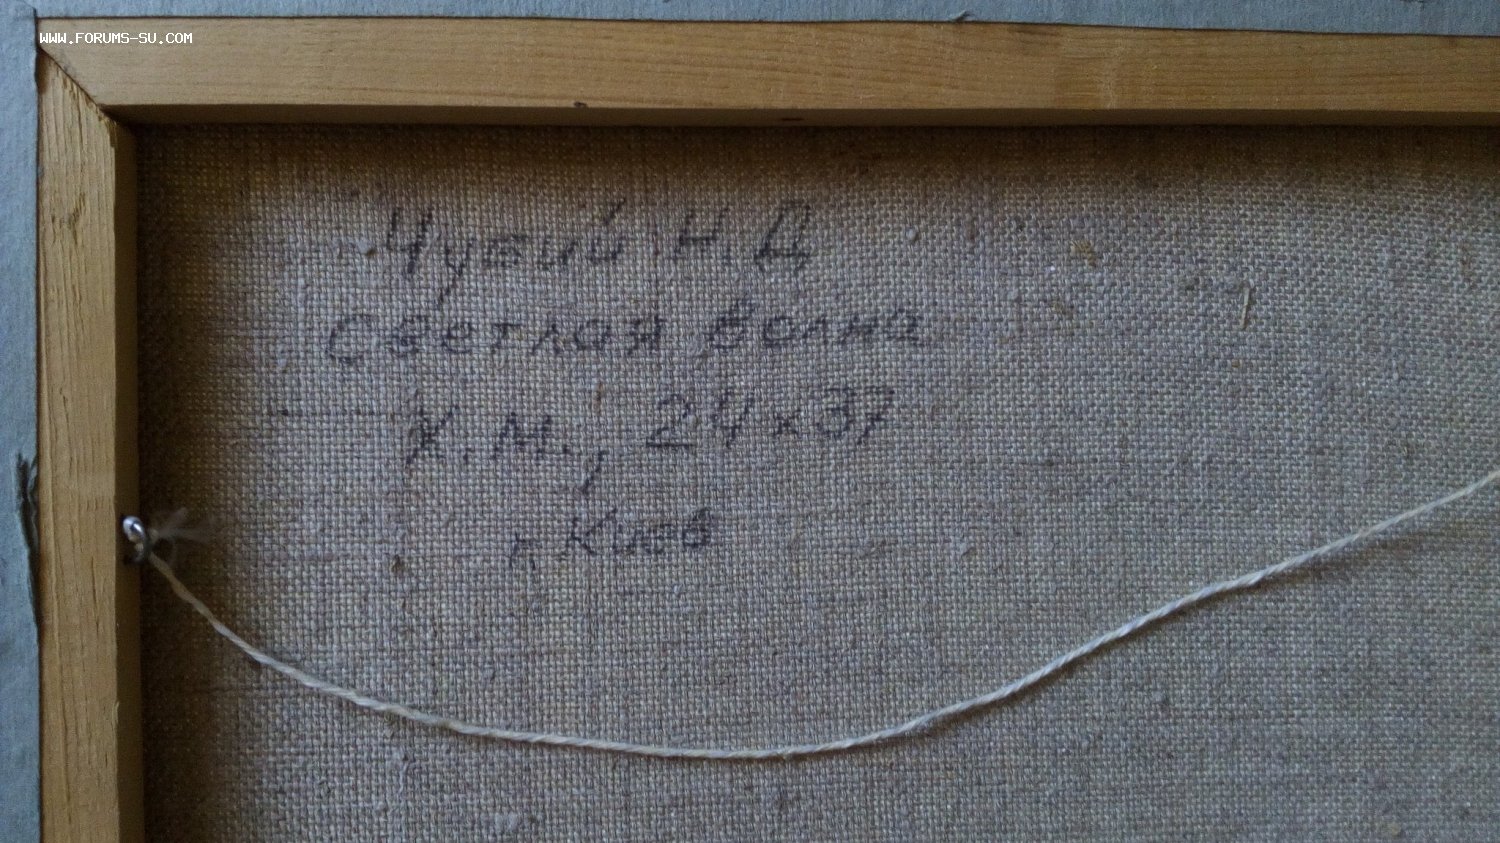 WWW.FORUMS-SU.COM
Чубий Н.Д
Светлая волна
Х.М., 24х37
г Киев